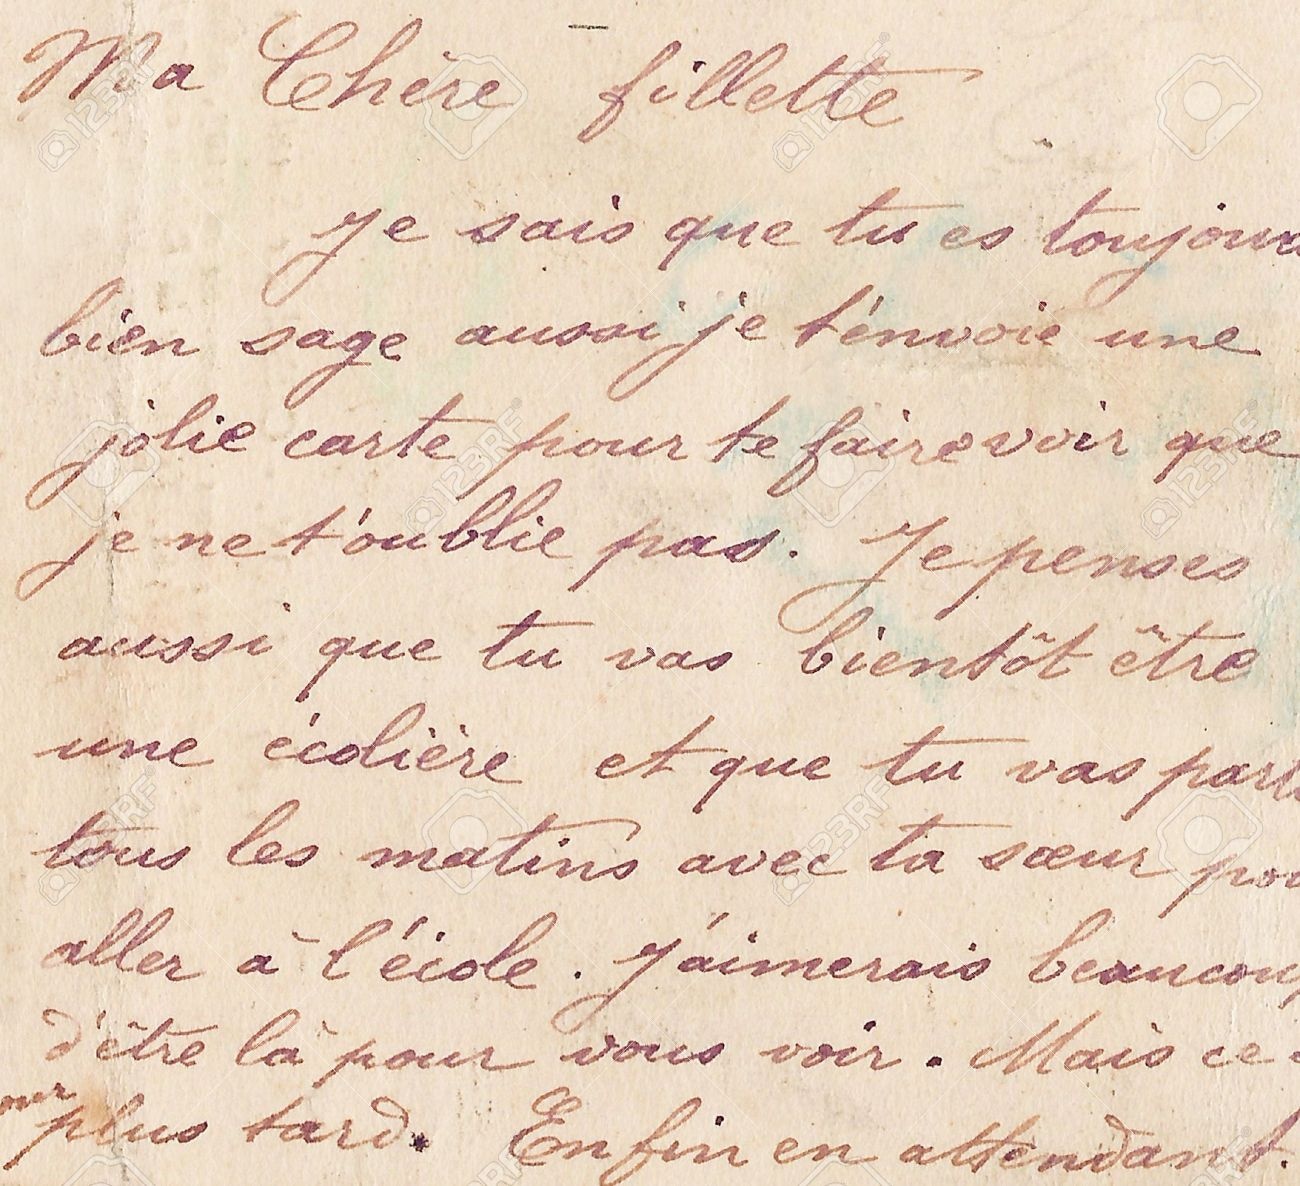 Ma Chère fillette
Je sais que tu es toujours
bien sage aussi je t'envoie une
jolie carte pour te faire voir que
je ne t'oublie pas. Je penses
aussi que tu vas bientôt être
une écolière et que tu vas parti
tous les matins avec ta sœur pou
aller à l'école. J'aimerais beaucoup
d'être là pour vous voir. Mais ce
our
plus tard. Enfin en attendant.